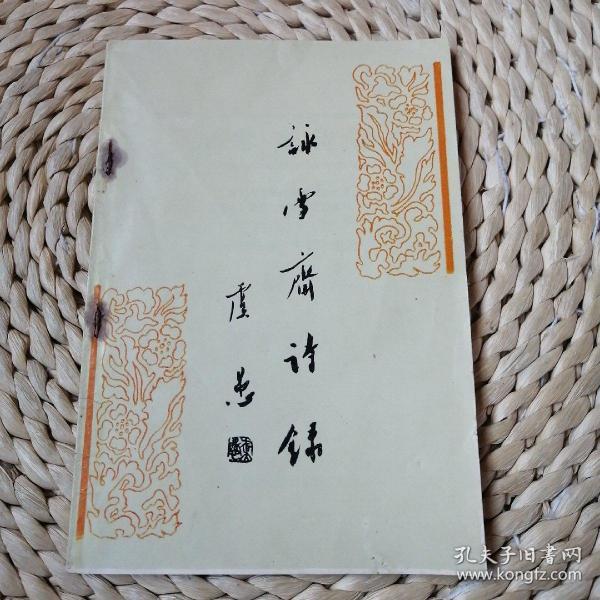 詠雪齋詩錄
虞愚
孔夫子旧书网
www.kongfz.com